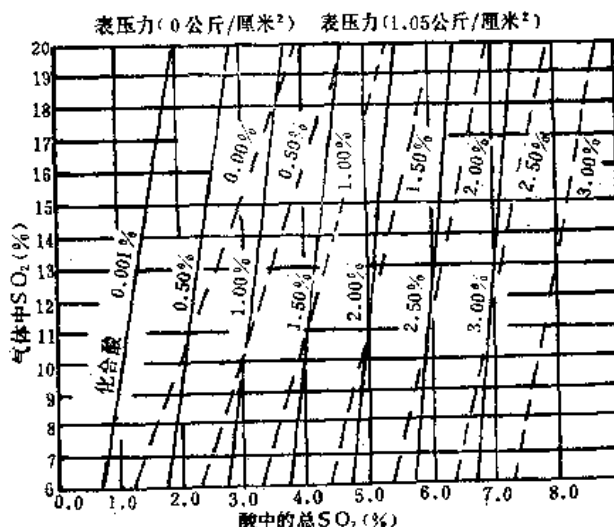 表压力(0公斤/厘米²) 表压力(1.05公斤/厘米²)
气体中SO₂(%)
20
19
18
17
16
15
14
13
12
11
10
9
8
7
6
0.00%
0.50%
1.00%
1.50%
2.00%
2.50%
3.00%
0.001%
0.50%
1.00%
1.50%
2.00%
2.50%
3.00%
化合酸
0.0 1.0 2.0 3.0 4.0 5.0 6.0 7.0 8.0
酸中的总SO₂(%)